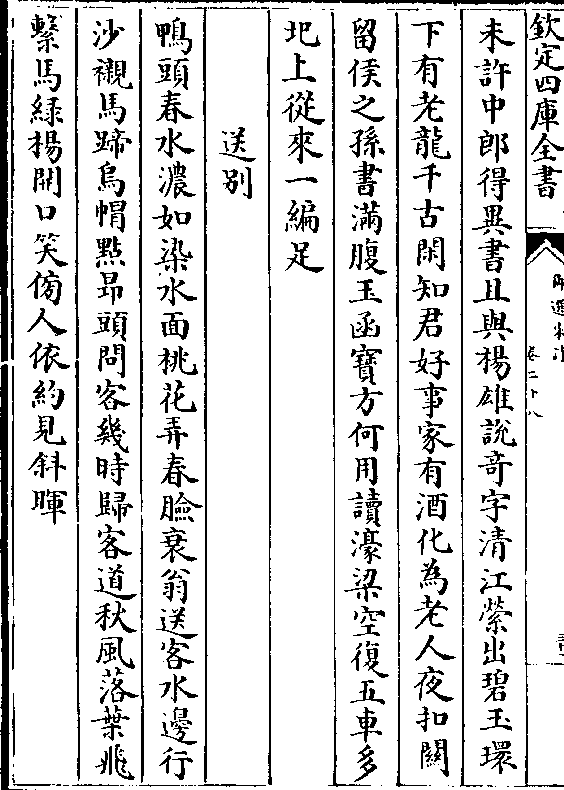 欽定四庫全書
卷二十八
未許中郎得異書且與楊雄說竒字清江縈出碧玉環
下有老龍千古閑知君好事家有酒化為老人夜扣關
留侯之孫書滿腹玉函寶方何用讀濠梁空復五車多
圯上從來一編足
送別
鴨頭春水濃如染水面桃花弄春臉衰翁送客水邊行
沙襯馬蹄烏帽點昂頭問客幾時歸客道秋風落葉飛
繫馬緑楊開口笑傍人依約見斜暉